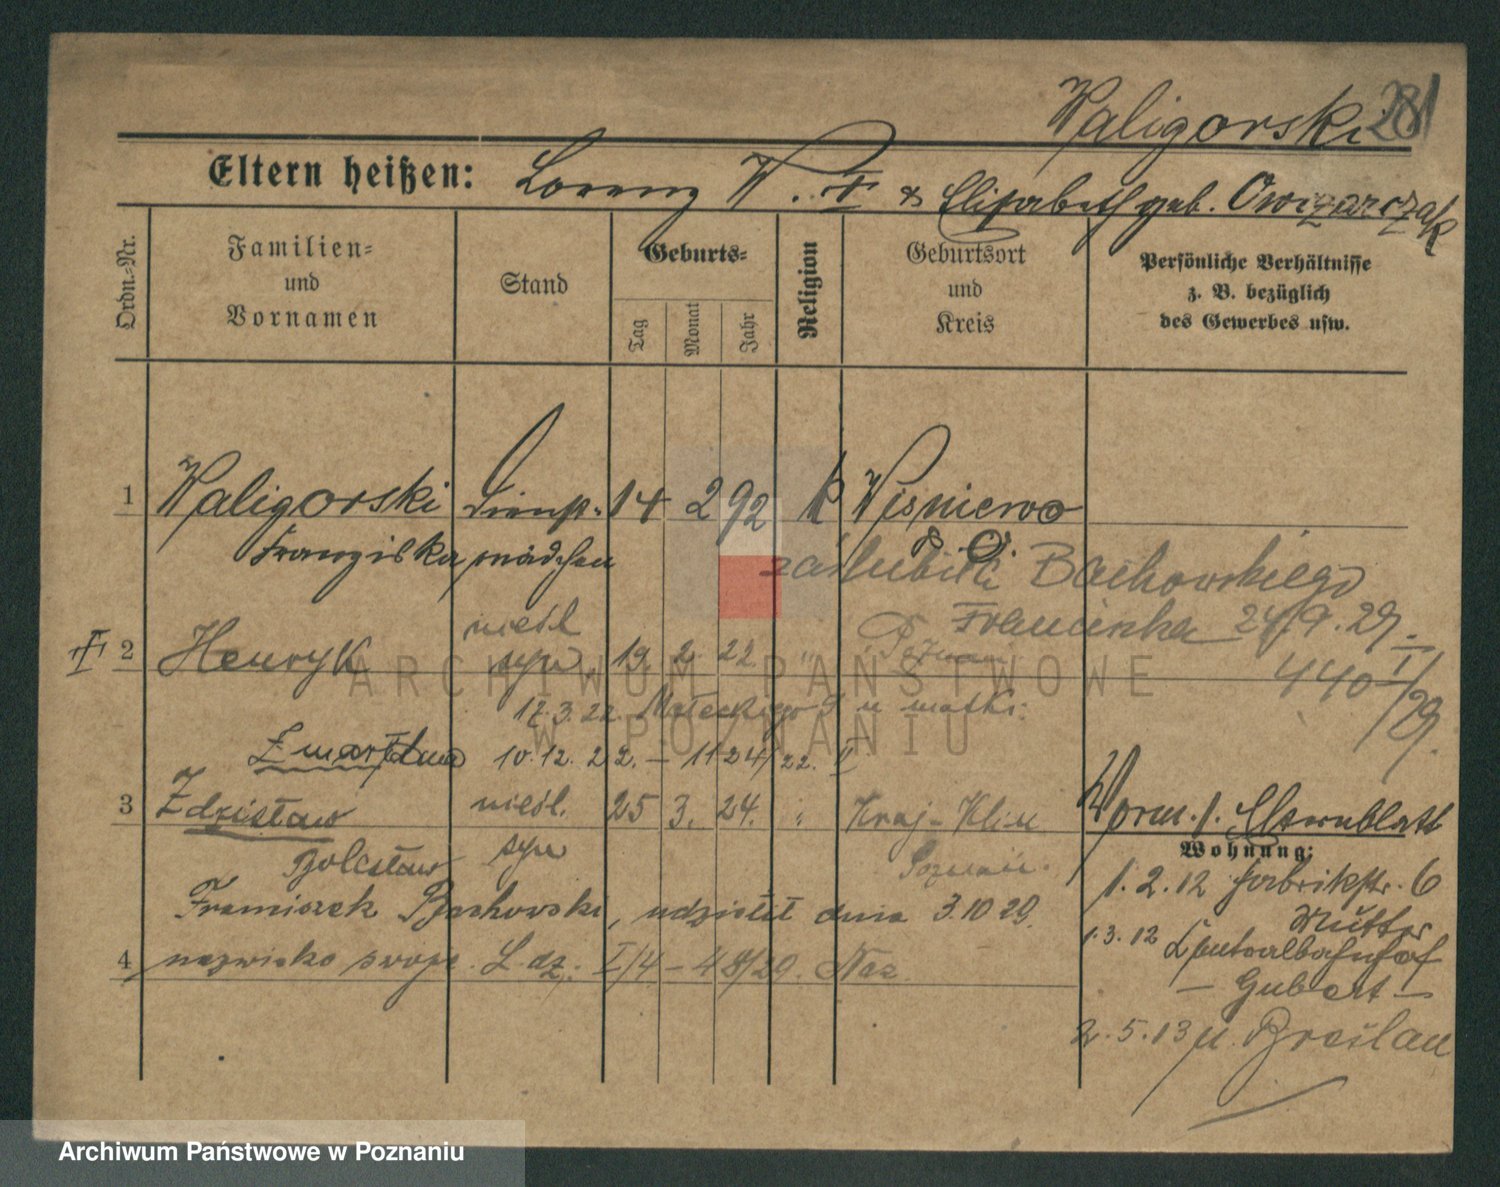 Waligorski 281
Eltern heißen: Lorenz W. & Elisabeth geb. Owczarczak
Ordn.-Nr.
Familien-
und
Vornamen
Stand
Geburts-
Tag
Monat
Jahr
Religion
Geburtsort
und
Kreis
Persönliche Verhältnisse
z. B. bezüglich
des Gewerbes usw.
1 Waligorski Dienst- 14 2 92 k Wisniewo
Franziska mädchen
zaślubiła Bachorskiego
Franciszka 24.9.29.
440 I/29.
2 Henryk nieśl. syn 19 2. 22 " Poznań
17.3.22. Małeckiego 9 u matki.
Zmarł dnia 10.12.22. – 1124/22. II
3 Zdzisław nieśl. 25 3. 24. " Kraj-Klin
Bolesław syn Poznań.
Franciszek Bachorski, udzielił dnia 3.10 29.
4 nazwisko swoje. L. dz. I/4 – 48/29.
Worm. 1.
Wohnung:
1. 2. 12 Fabrikstr. 6
Mutter
1. 3. 12 Zentralbahnhof
– Gubert –
2. 5. 13 n. Breslau
ARCHIWUM PAŃSTWOWE
W POZNANIU
Archiwum Państwowe w Poznaniu